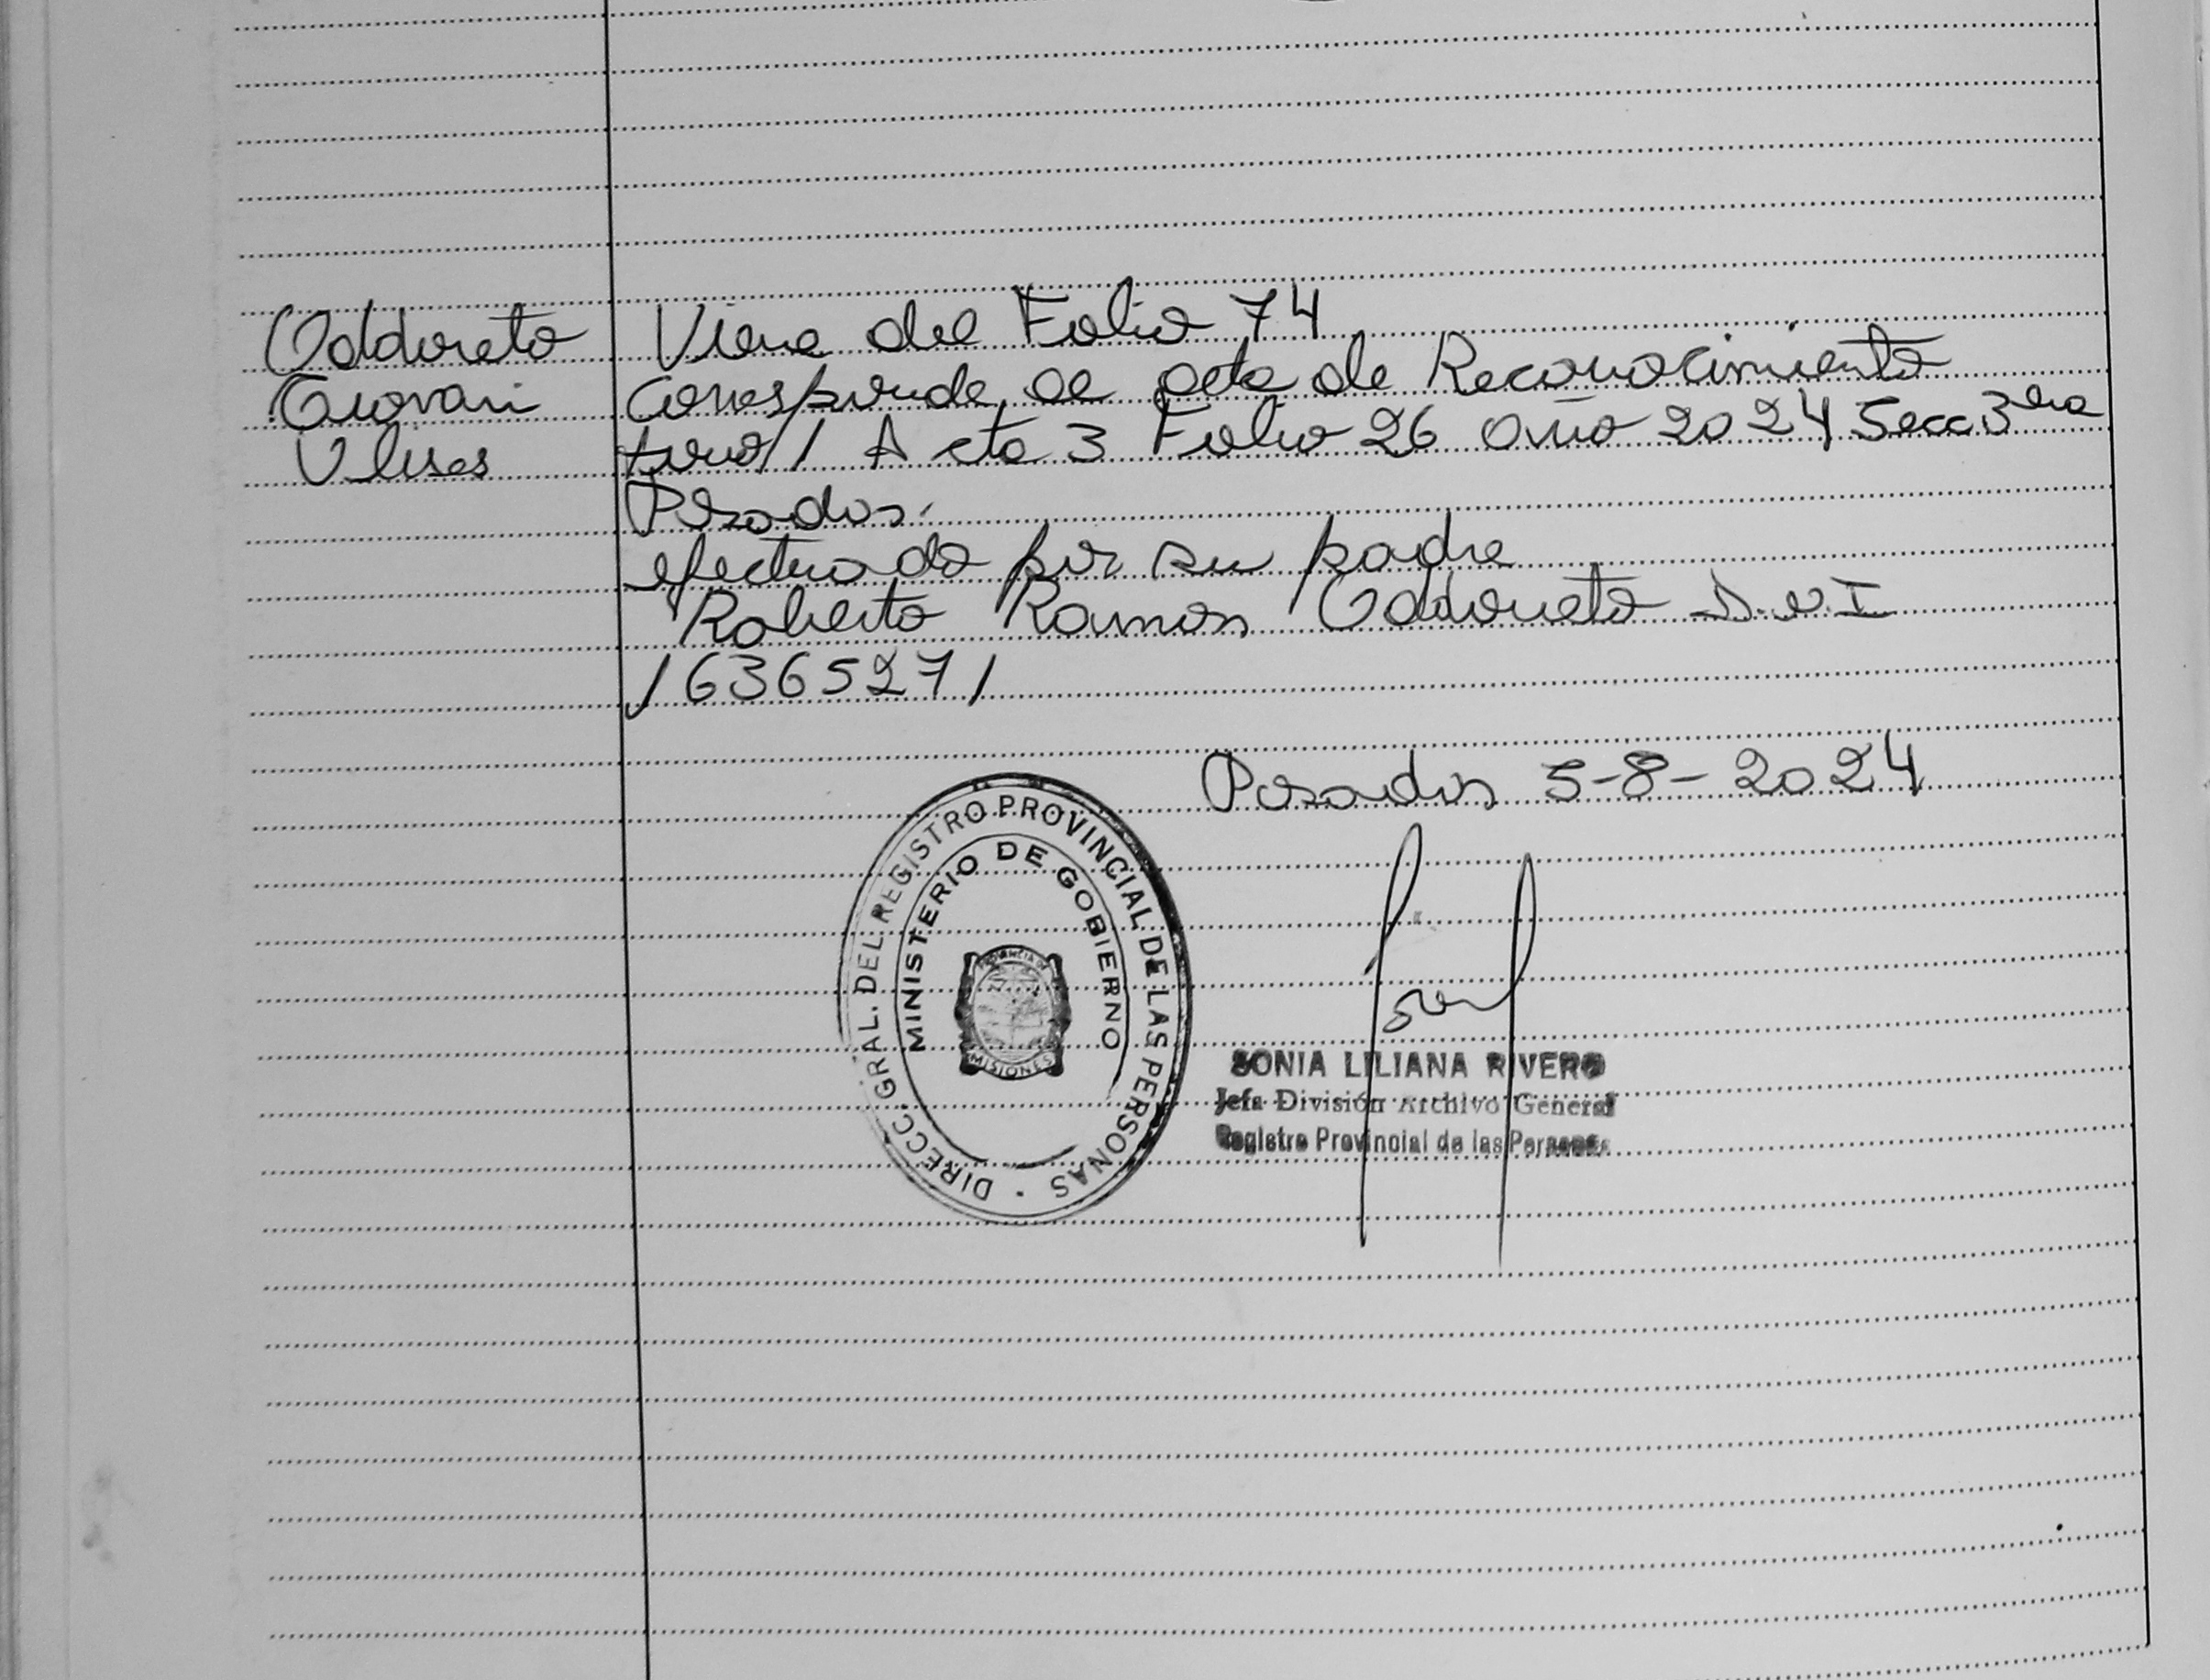 Oddoneto
Giovani
Ulises
Viene del Folio 74
Corresponde al acta de Reconocimiento
tomo 1 Acta 3 Folio 26 Año 2024 Secc 3ra
Posadas.
efectuado por su padre
Roberto Ramon Oddoneto D.N.I
16365271
Posadas 5-8-2024
DIRECC. GRAL. DEL REGISTRO PROVINCIAL DE LAS PERSONAS
MINISTERIO DE GOBIERNO
PROVINCIA DE
MISIONES
SONIA LILIANA RIVERO
Jefa División Archivo General
Registro Provincial de las Personas